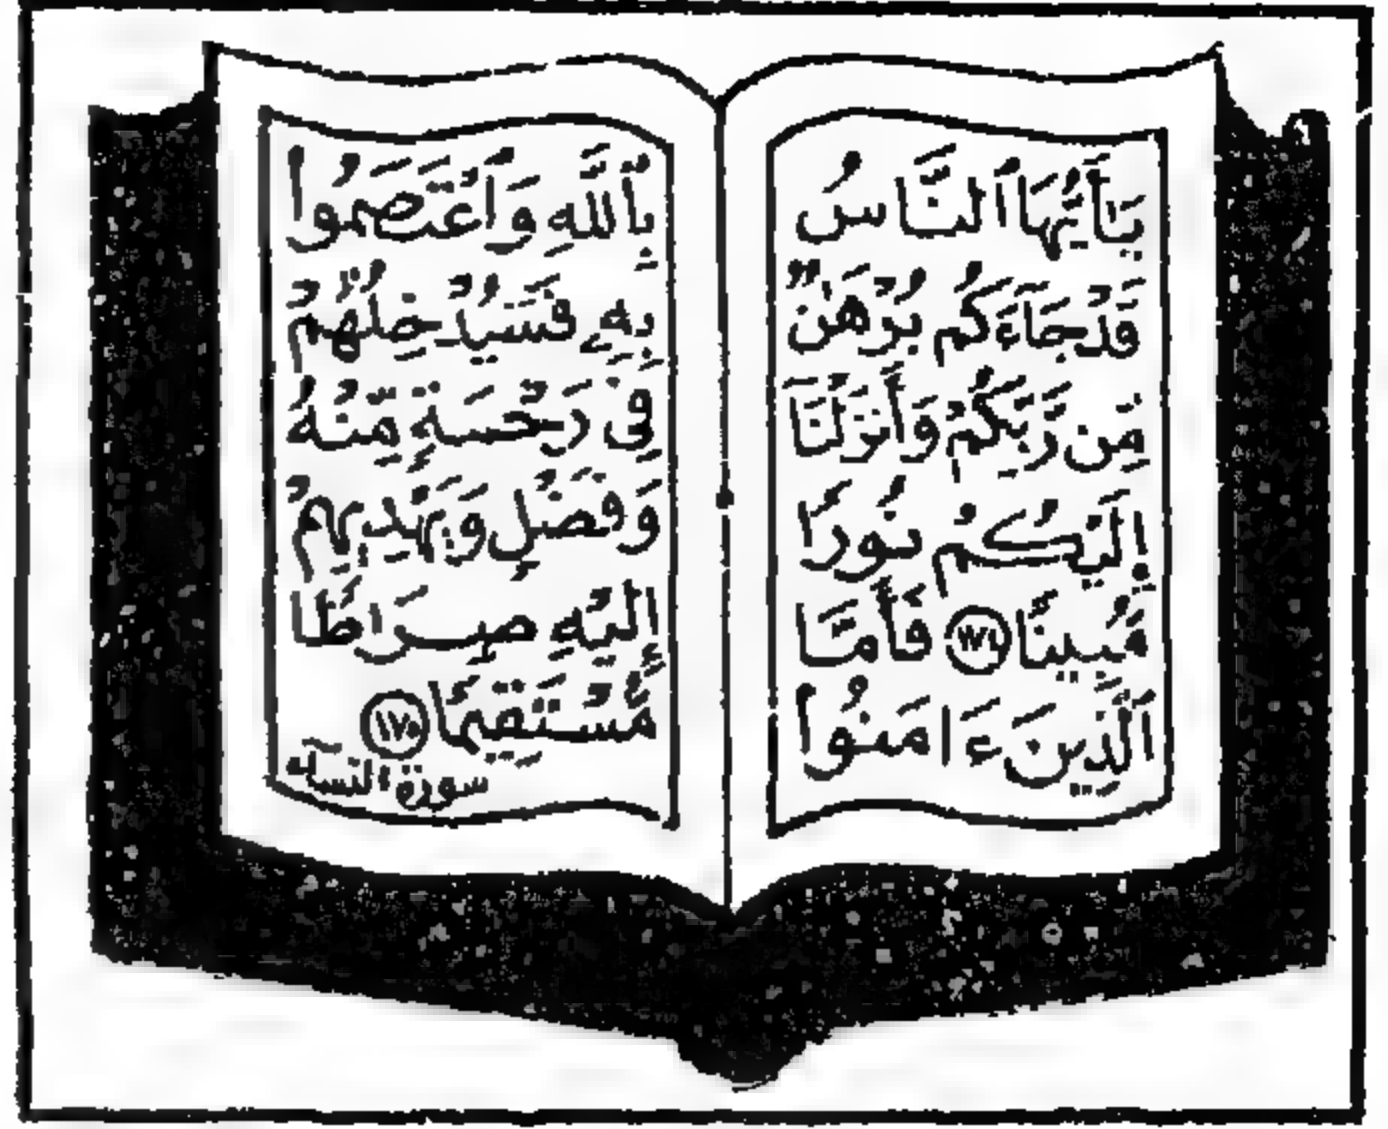 يَٰأَيُّهَا ٱلنَّاسُ
قَدْ جَآءَكُم بُرْهَٰنٌ
مِّن رَّبِّكُمْ وَأَنزَلْنَآ
إِلَيْكُمْ نُورًا
مُّبِينًا ١٧٤ فَأَمَّا
ٱلَّذِينَ ءَامَنُوا۟
بِٱللَّهِ وَٱعْتَصَمُوا۟
بِهِۦ فَسَيُدْخِلُهُمْ
فِى رَحْمَةٍ مِّنْهُ
وَفَضْلٍ وَيَهْدِيهِمْ
إِلَيْهِ صِرَٰطًا
مُّسْتَقِيمًا ١٧٥
سورة النساء